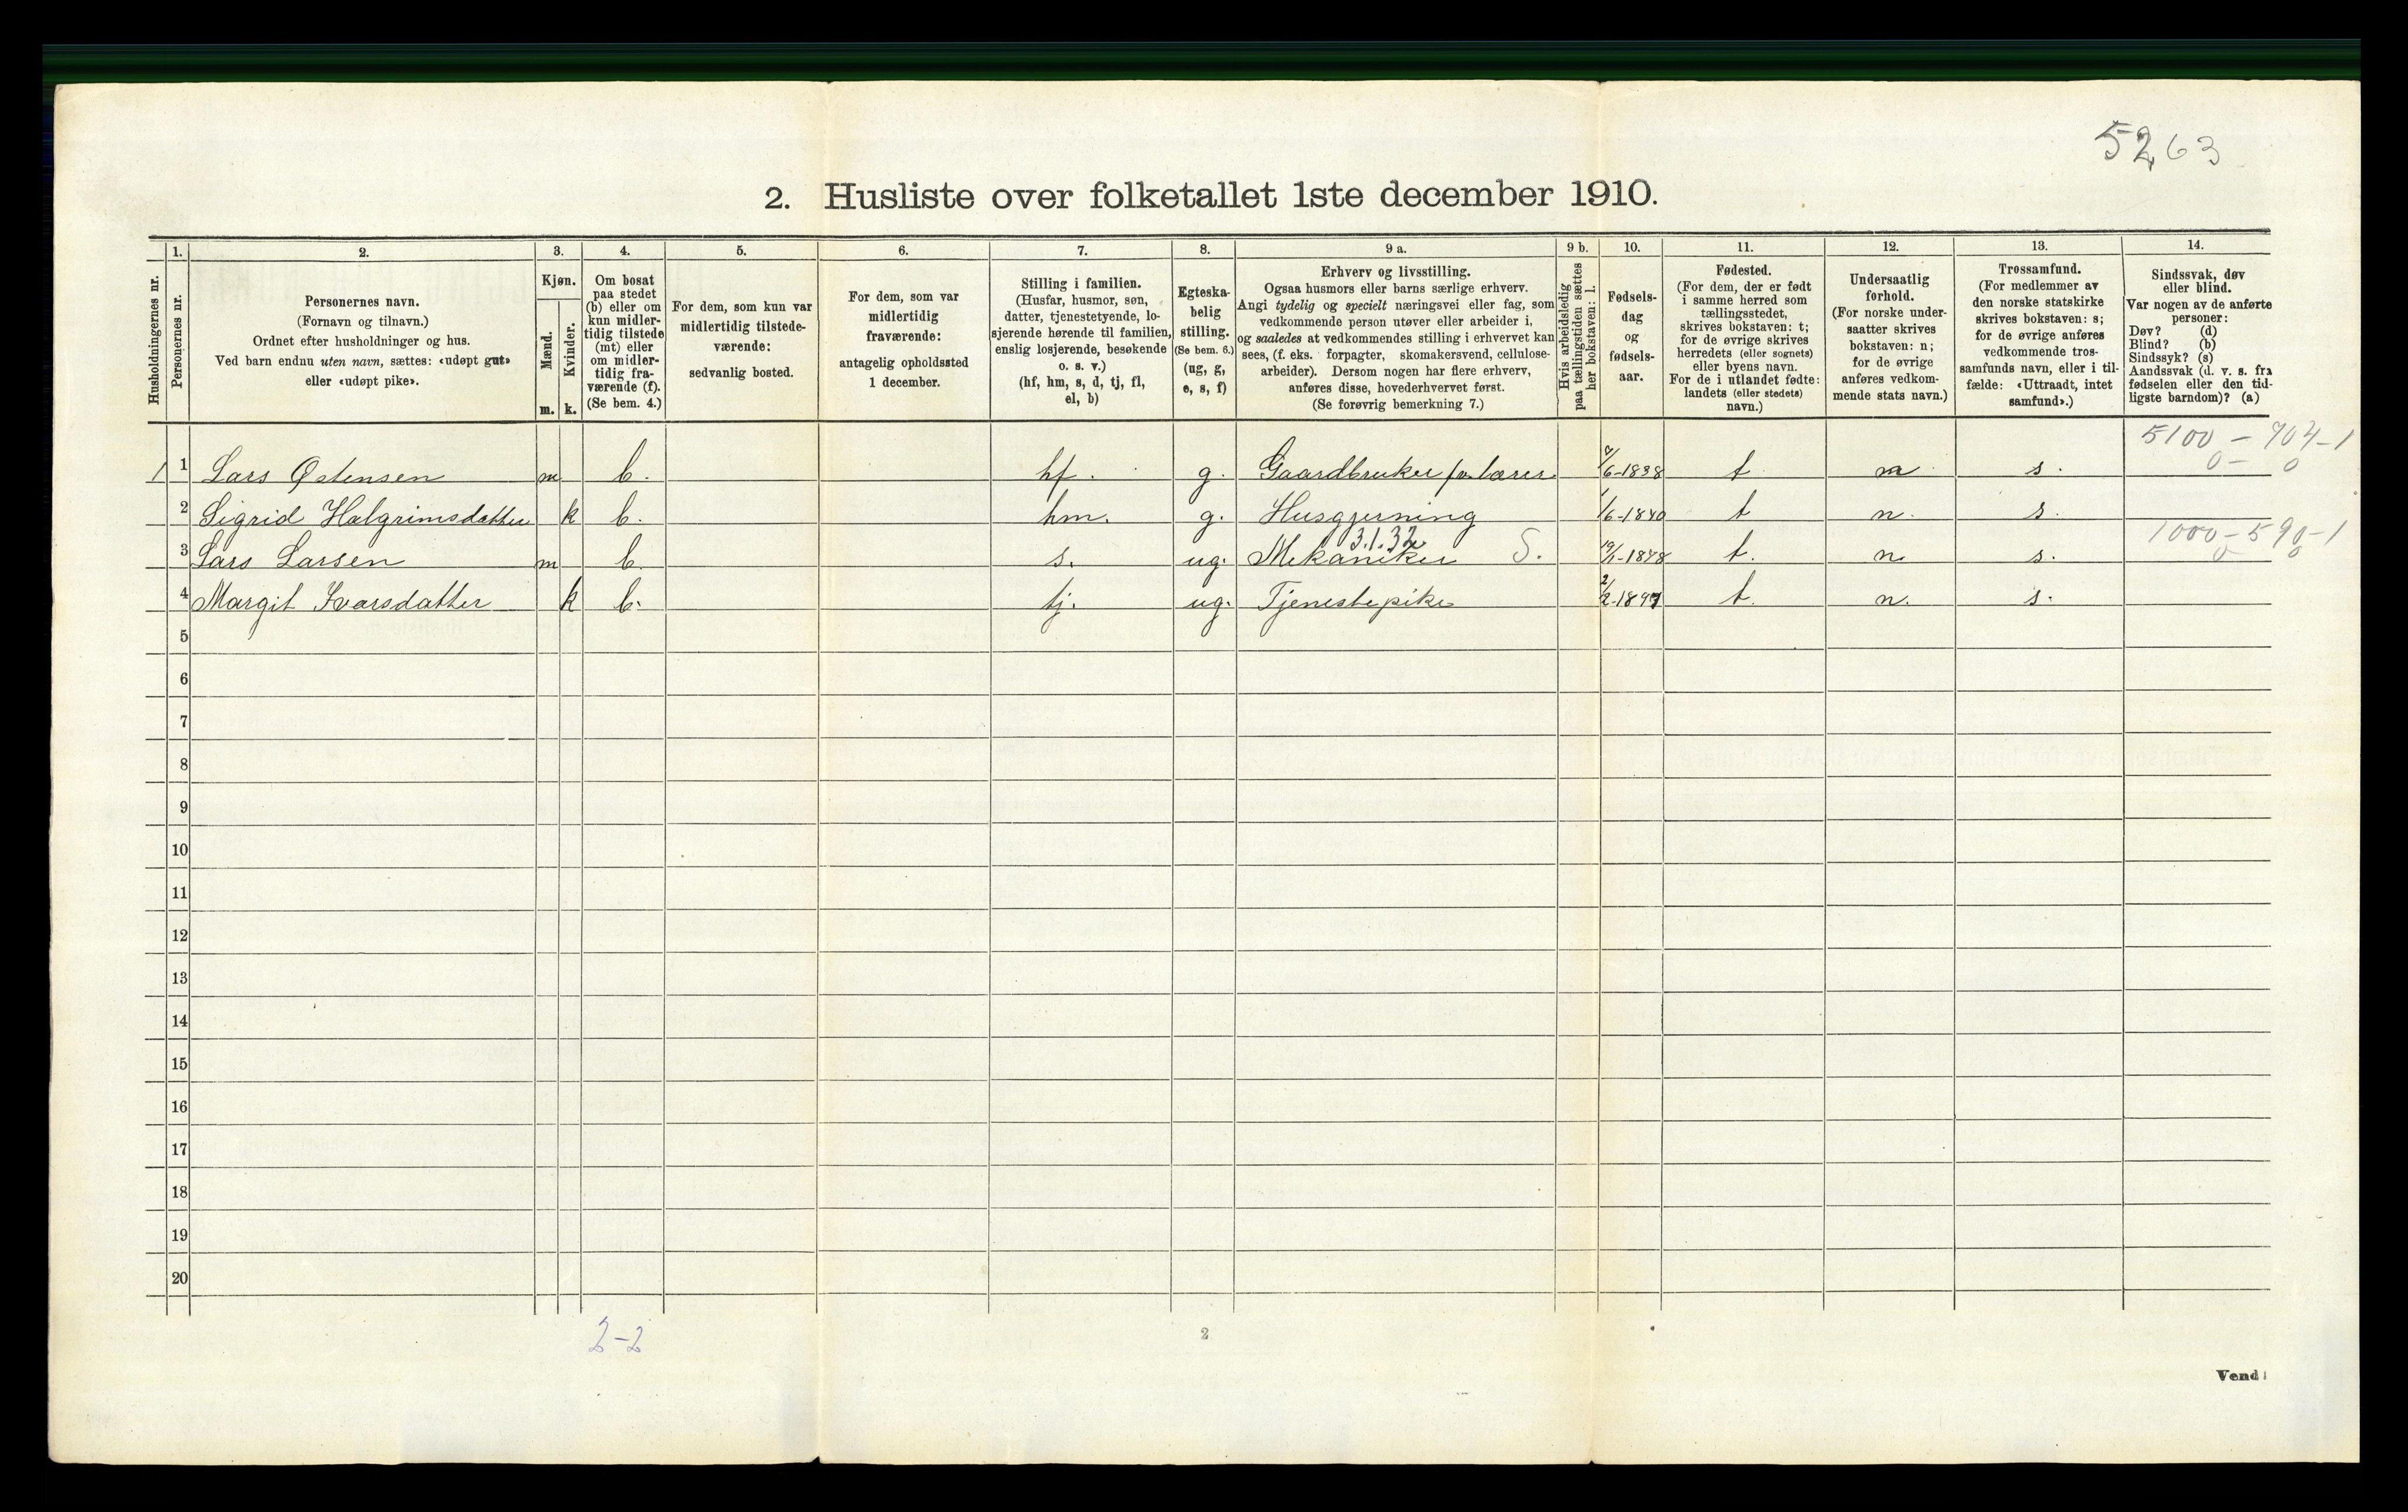 5263
2. Husliste over folketallet 1ste december 1910.
Husholdningernes nr.
1.
Personernes nr.
2.
Personernes navn.
(Fornavn og tilnavn.)
Ordnet efter husholdninger og hus.
Ved barn endnu uten navn, sættes: «udøpt gut»
eller «udøpt pike».
3.
Kjøn.
Mænd.
Kvinder.
m. k.
4.
Om bosat
paa stedet
(b) eller om
kun midler-
tidig tilstede
(mt) eller
om midler-
tidig fra-
værende (f).
(Se bem. 4.)
5.
For dem, som kun var
midlertidig tilstede-
værende:
sedvanlig bosted.
6.
For dem, som var
midlertidig
fraværende:
antagelig opholdssted
1 december.
7.
Stilling i familien.
(Husfar, husmor, søn,
datter, tjenestetyende, lo-
sjerende hørende til familien,
enslig losjerende, besøkende
o. s. v.)
(hf, hm, s, d, tj, fl,
el, b)
8.
Egteska-
belig
stilling.
(Se bem. 6.)
(ug, g,
e, s, f)
9 a.
Erhverv og livsstilling.
Ogsaa husmors eller barns særlige erhverv.
Angi tydelig og specielt næringsvei eller fag, som
vedkommende person utøver eller arbeider i,
og saaledes at vedkommendes stilling i erhvervet kan
sees, (f. eks. forpagter, skomakersvend, cellulose-
arbeider). Dersom nogen har flere erhverv,
anføres disse, hovederhvervet først.
(Se forøvrig bemerkning 7.)
9 b.
Hvis arbeidsledig
paa tællingstiden sættes
her bokstaven: l.
10.
Fødsels-
dag
og
fødsels-
aar.
11.
Fødested.
(For dem, der er født
i samme herred som
tællingsstedet,
skrives bokstaven: t;
for de øvrige skrives
herredets (eller sognets)
eller byens navn.
For de i utlandet fødte:
landets (eller stedets)
navn.)
12.
Undersaatlig
forhold.
(For norske under-
saatter skrives
bokstaven: n;
for de øvrige
anføres vedkom-
mende stats navn.)
13.
Trossamfund.
(For medlemmer av
den norske statskirke
skrives bokstaven: s;
for de øvrige anføres
vedkommende tros-
samfunds navn, eller i til-
fælde: «Uttraadt, intet
samfund».)
14.
Sindssvak, døv
eller blind.
Var nogen av de anførte
personer:
Døv? (d)
Blind? (b)
Sindssyk? (s)
Aandssvak (d. v. s. fra
fødselen eller den tid-
ligste barndom)? (a)
5100 - 704-1
0 - 0
1 1 Lars Østensen m b. hf. g. Gaardbruker fv. lærer 6-1838 t n s.
2 Sigrid Halgrimsdatter k b. hm. g. Husgjerning 1/6-1840 t n. s.
3.1.32 1000-590-1
0 0
3 Lars Larsen m b. s. ug. Mekaniker S. t. n. s.
4 Margit Ivarsdatter k b. tj. ug. Tjenestepike 2/2-1897 t. n. s.
5
6
7
8
9
10
11
12
13
14
15
16
17
18
19
20
2-2
2
Vend!